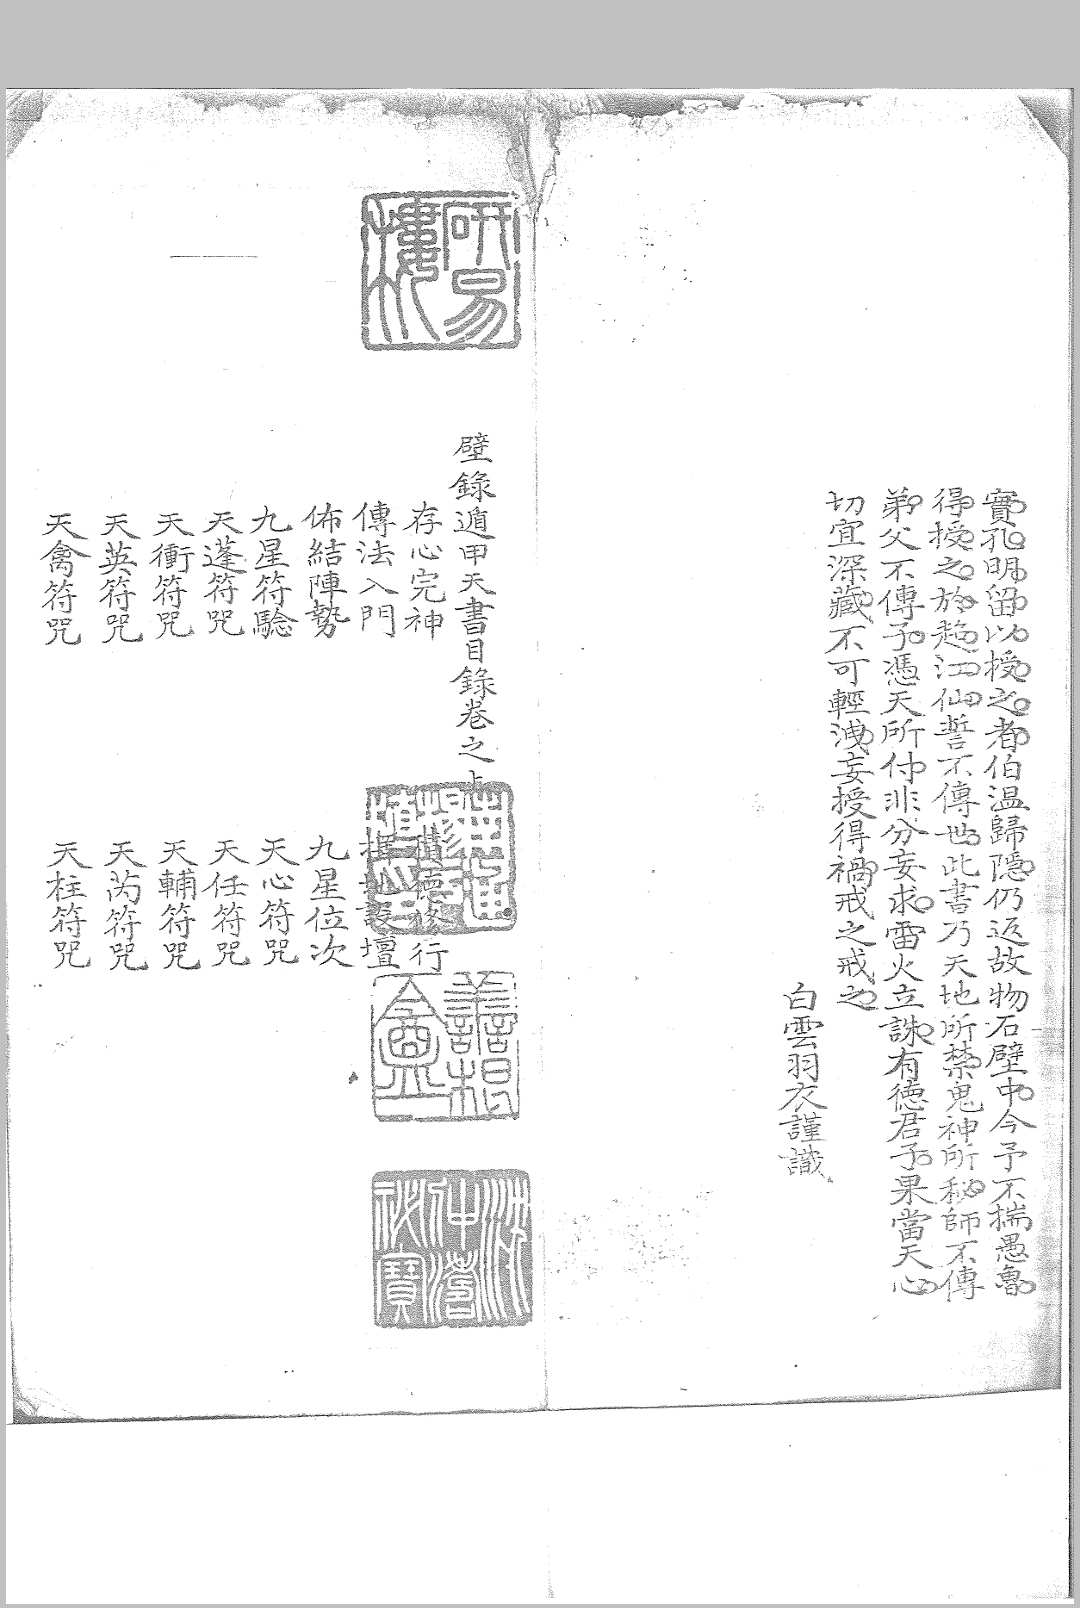 實孔明留以授之者伯温歸隱仍返故物石壁中今予不揣愚魯
得授之於趙江仙誓不傳世此書乃天地所禁鬼神所秘師不傳
弟父不傳子憑天所付非分妄求雷火立誅有德君子果當天心
切宜深藏不可輕洩妄授得禍戒之戒之
白雲羽衣謹識
研易樓
壁錄遁甲天書目錄卷之上
存心完神 積德修行
傳法入門 擇地設壇
佈結陣勢 九星位次
九星符驗 天心符咒
天蓬符咒 天任符咒
天衝符咒 天輔符咒
天英符咒 天芮符咒
天禽符咒 天柱符咒
沈仲濤
秘寶